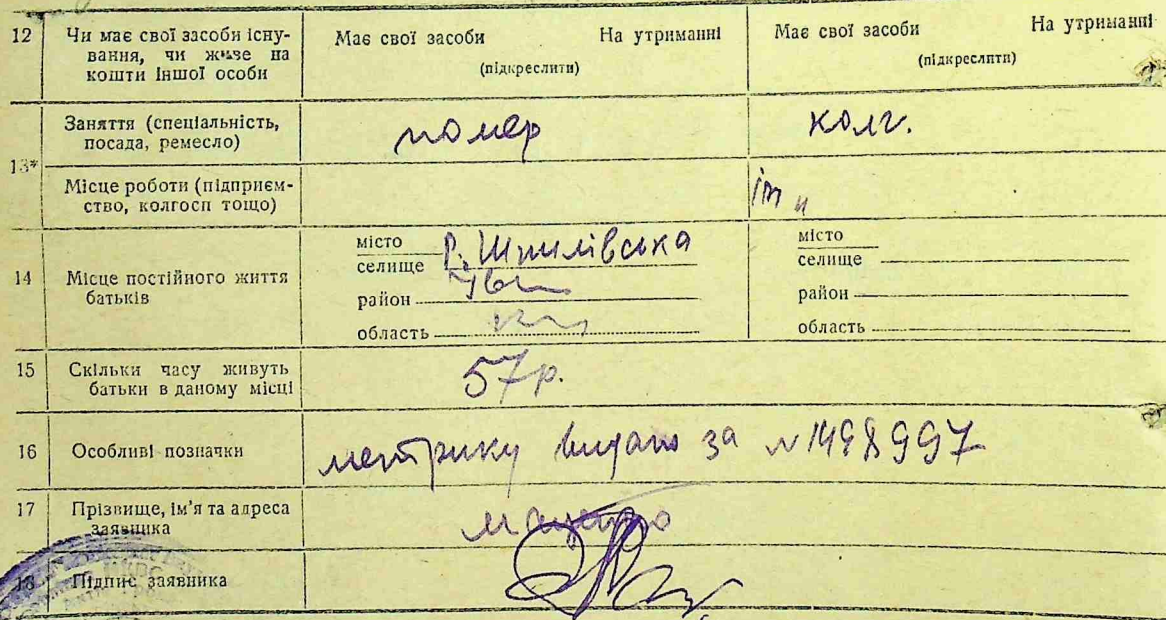 12 Чи має свої засоби існу-
вання, чи живе на
кошти іншої особи
Має свої засоби На утриманні
(підкреслити)
Має свої засоби На утриманні
(підкреслити)
13*
Заняття (спеціальність,
посада, ремесло)
помер
колг.
Місце роботи (підприєм-
ство, колгосп тощо)
ім
14 Місце постійного життя
батьків
місто
селище Р. Шпилівська
район
область
місто
селище
район
область
15 Скільки часу живуть
батьки в даному місці
57 р.
16 Особливі позначки
метрику видано за № 1498997
17 Прізвище, ім'я та адреса
заявника
18 Підпис заявника